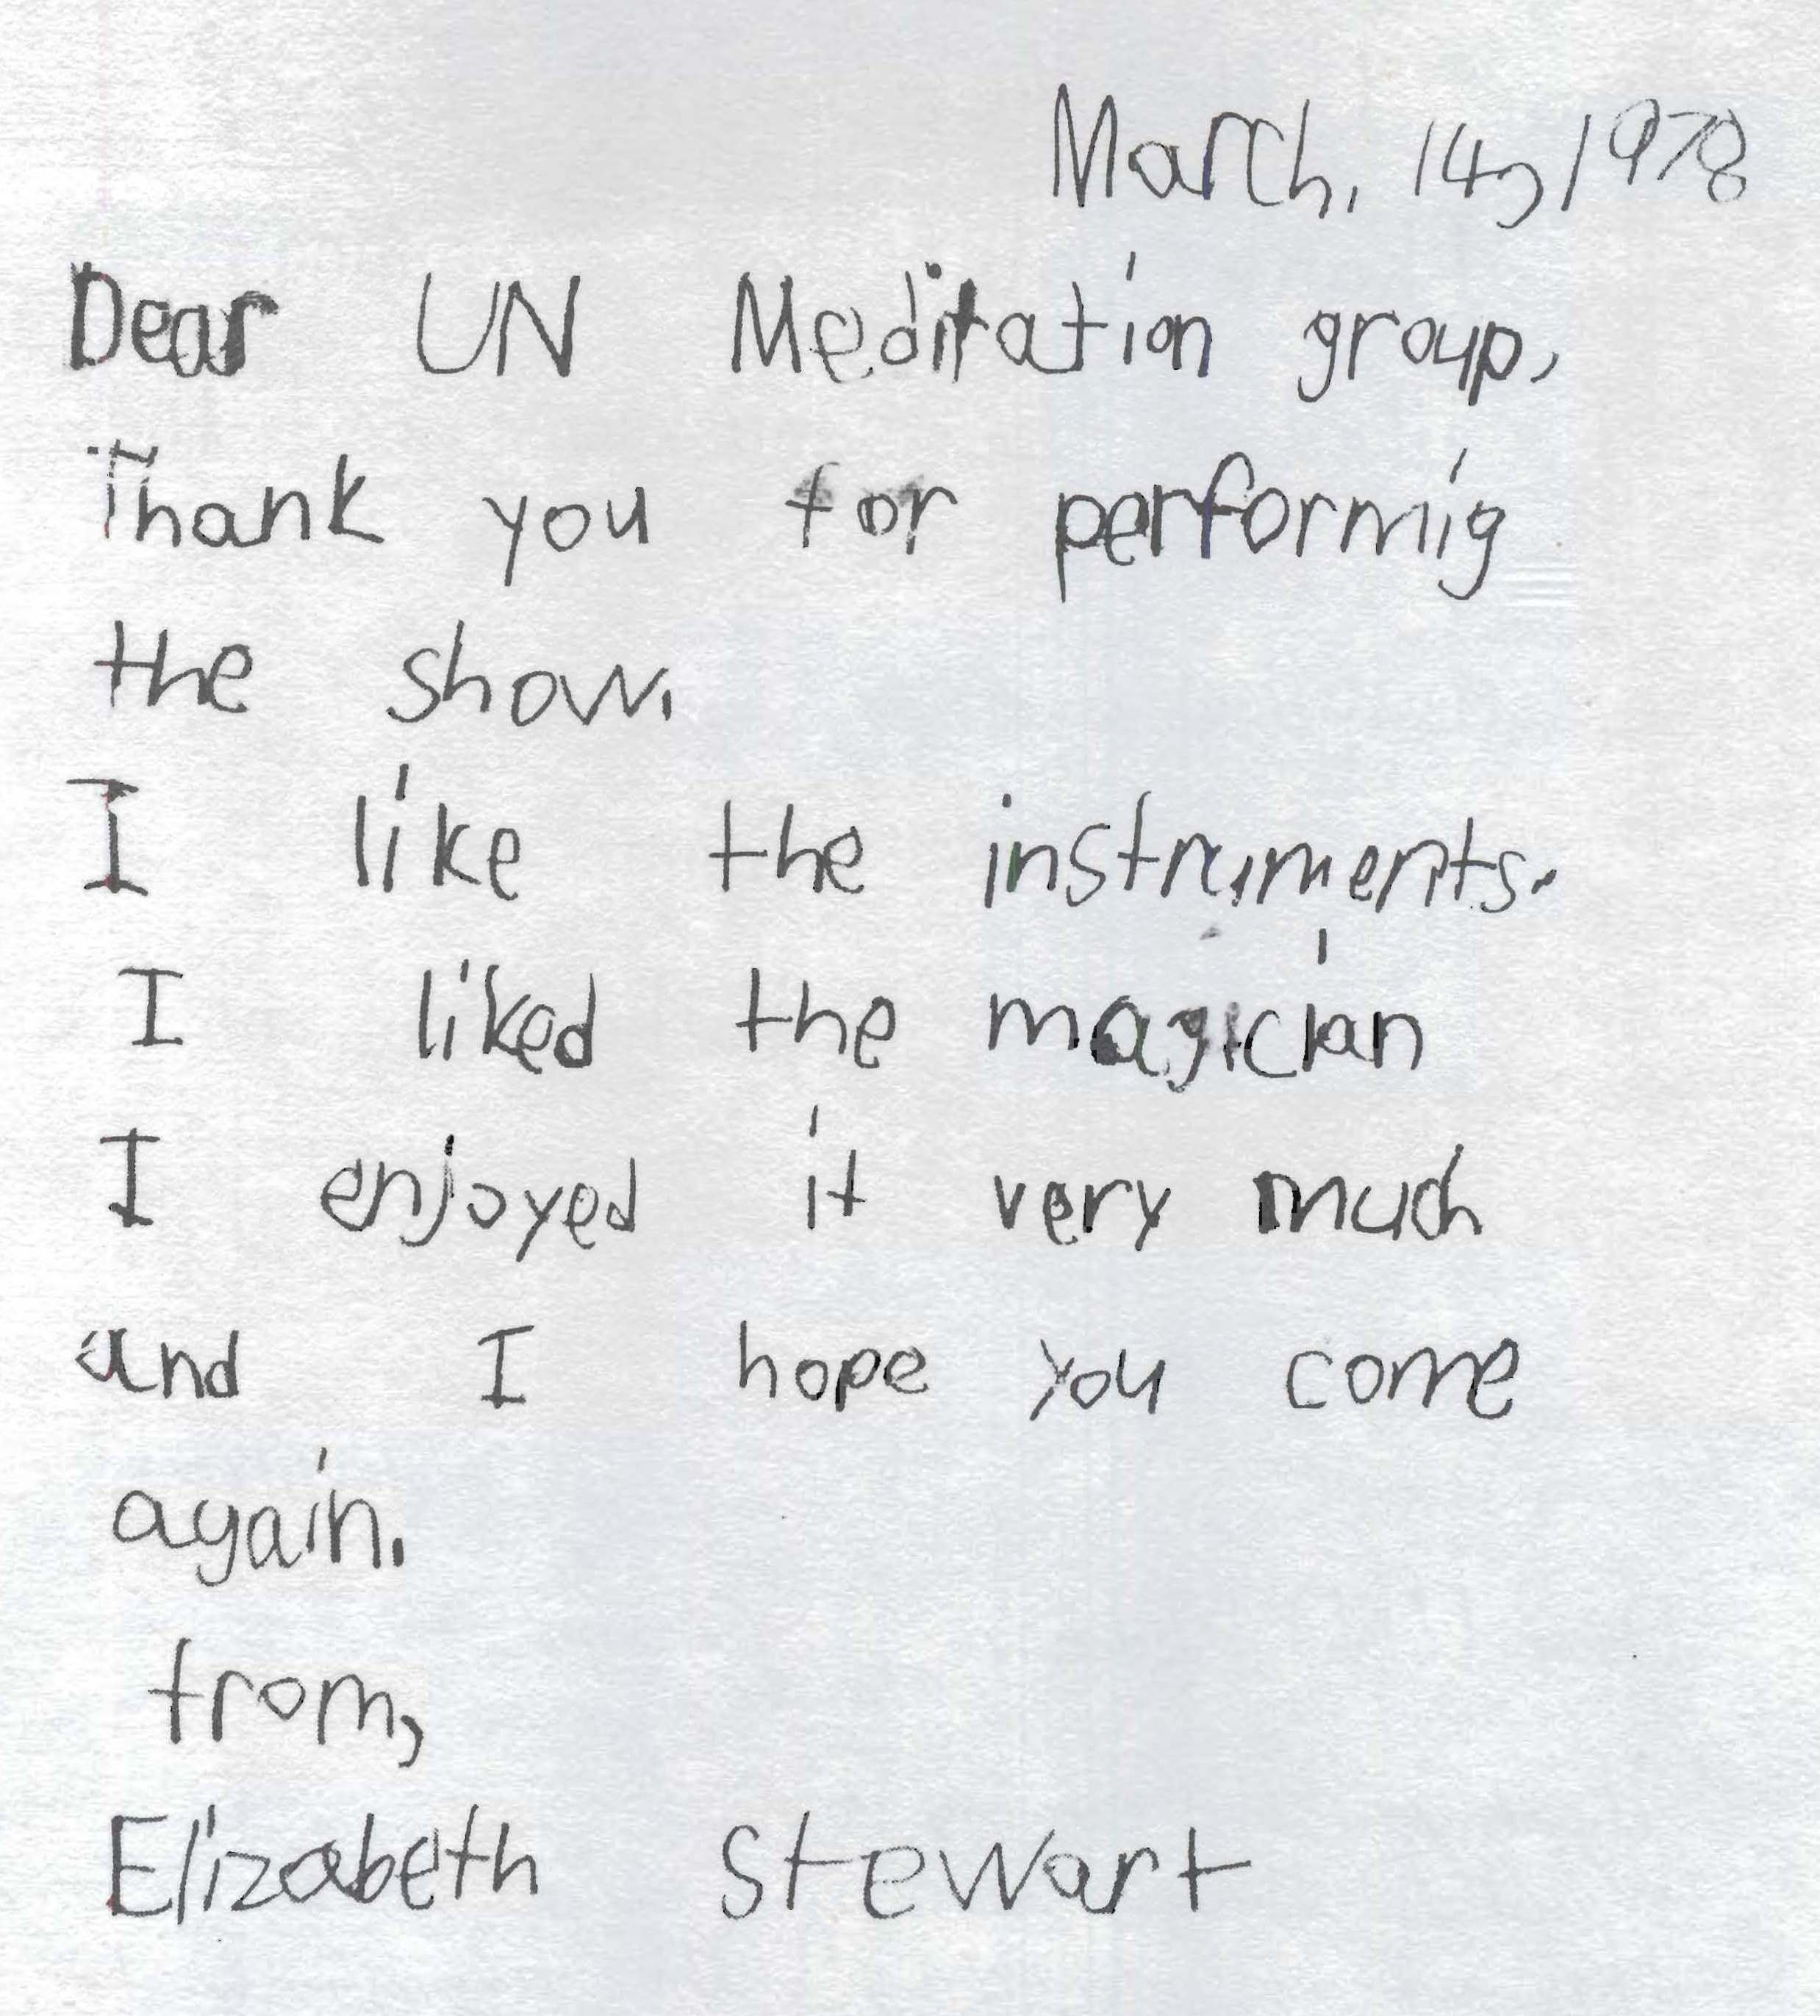 March, 14, 1978
Dear UN Meditation group,
Thank you for performig
the show.
I like the instruments.
I liked the magician
I enjoyed it very much
and I hope you come
again.
from,
Elizabeth Stewart